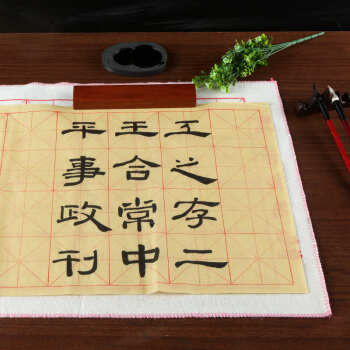 工之存二
王合常中
平事政刊